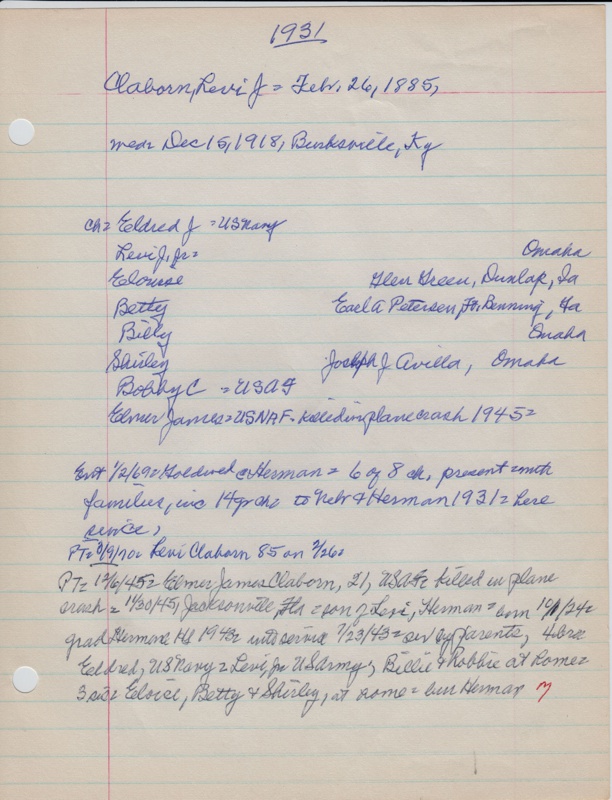 1931
Claborn, Levi J = Febr. 26, 1885,
med= Dec 15, 1918, Burksville, Ky
ch= Eldred J = US Navy
Levi J, Jr= Omaha
Elouise Glen Green, Dunlap, Ia
Betty Earl A Petersen, Ft. Benning, Ga
Billy Omaha
Shirley Joseph J Avilla, Omaha
Bobby C = USAF
Elmer James = USNAF - killed in plane crash 1945=
Ent 1/2/69= Gold wed c Herman = 6 of 8 ch, present = with
families, inc 14 gr ch= to Nebr & Herman 1931 = here
since,
PT= 3/9/70= Levi Claborn 85 on 2/26=
PT= 12/6/45= Elmer James Claborn, 21, USAF= killed in plane
crash = 11/30/45, Jacksonville, Fla = son of Levi, Herman = born 10/1/24=
grad Herman HS 1943= into service 7/23/43= sur by parents, 4 bro
Eldred, US Navy = Levi, Jr US Army, Billie & Robbie at home=
3 sis= Eloise, Betty & Shirley, at home = bur Herman